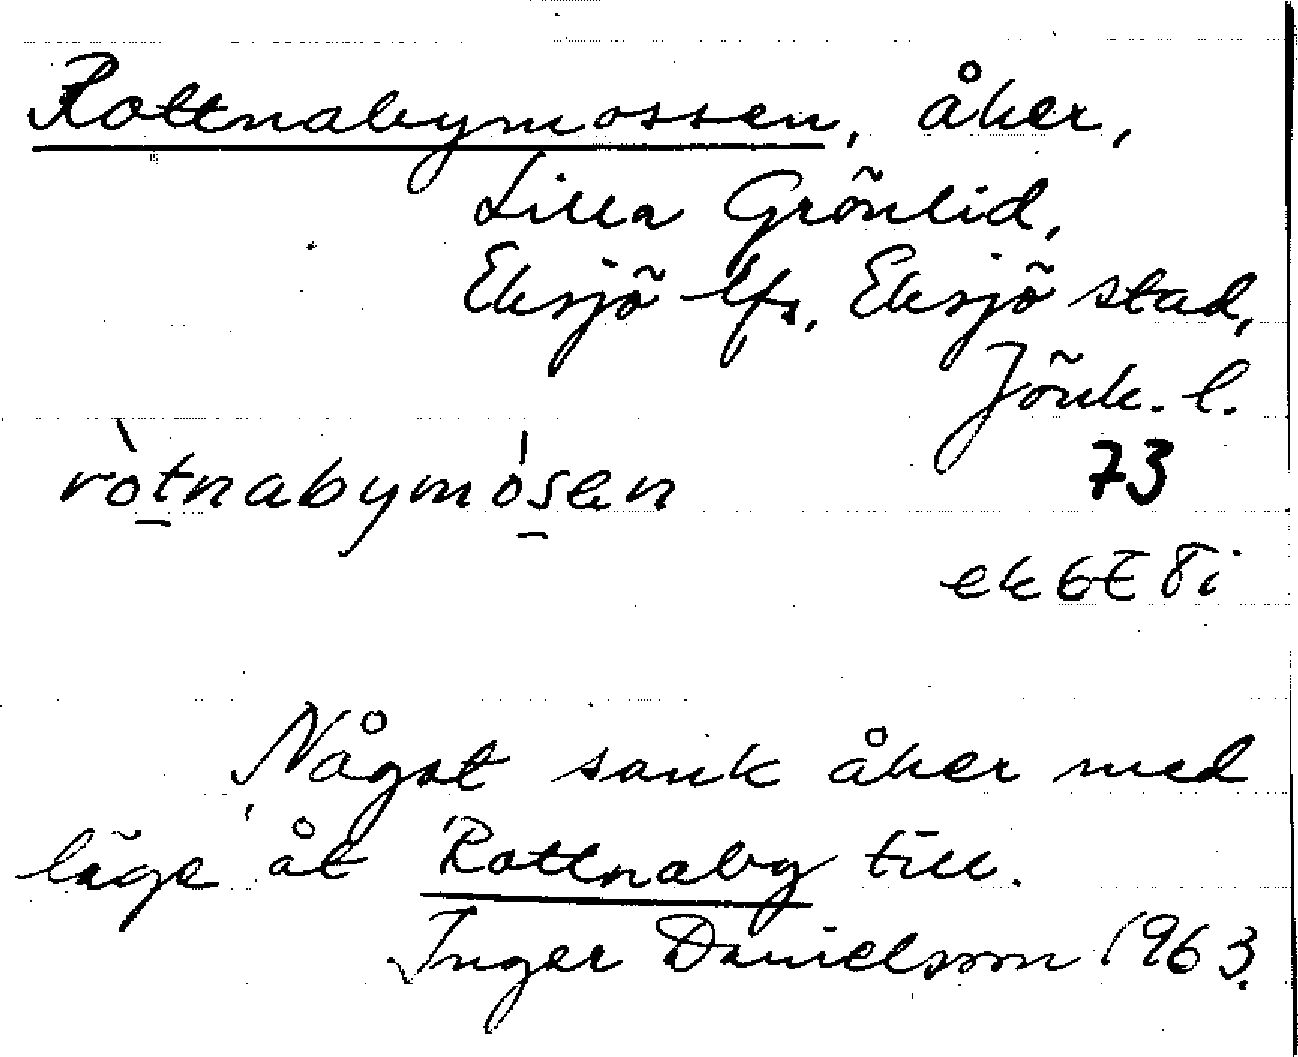 Rottnabymossen, åker,
Lilla Grönlid,
Eksjö lfs, Eksjö stad,
Jönk. l.
ròtnabymósen 73
ek 6E 8i
Något sank åker med
läge åt Rottnaby till.
Inger Danielsson 1963.